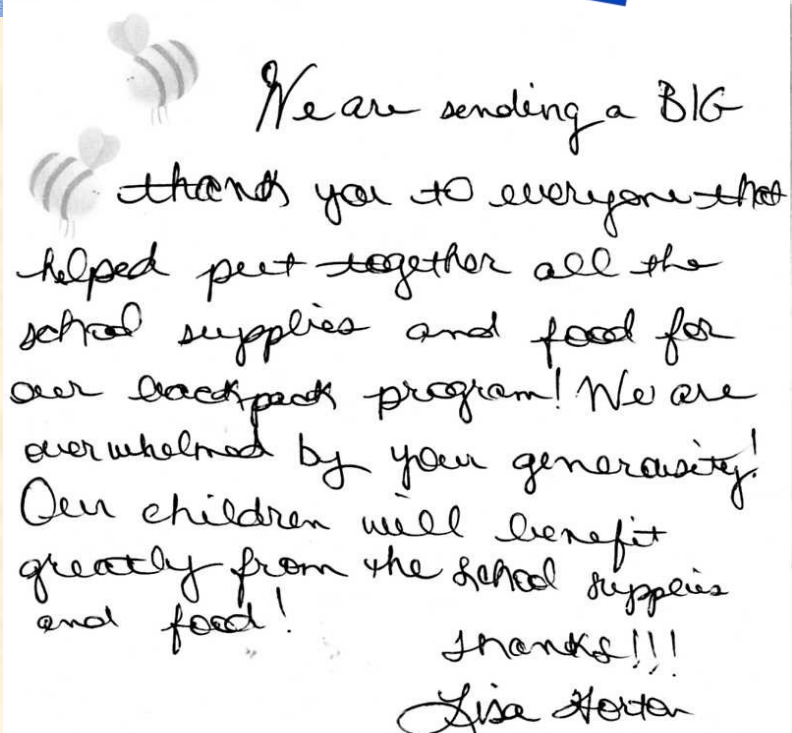 We are sending a BIG
thank you to everyone that
helped put together all the
school supplies and food for
our backpack program! We are
overwhelmed by your generousity!
Our children will benefit
greatly from the school supplies
and food!
Thanks!!!
Lisa Horton